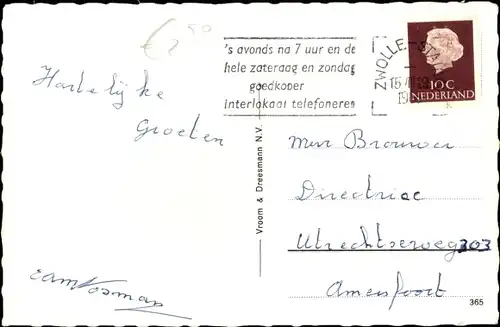 € 2 50
's avonds na 7 uur en de
hele zaterdag en zondag
goedkoper
interlokaal telefoneren
ZWOLLE-STA
15
19
10 C
NEDERLAND
Hartelijke
Groeten
Mevr Brouwer
Directrice
Utrechtseweg 303
Amersfoort
Vroom & Dreesmann N.V.
365